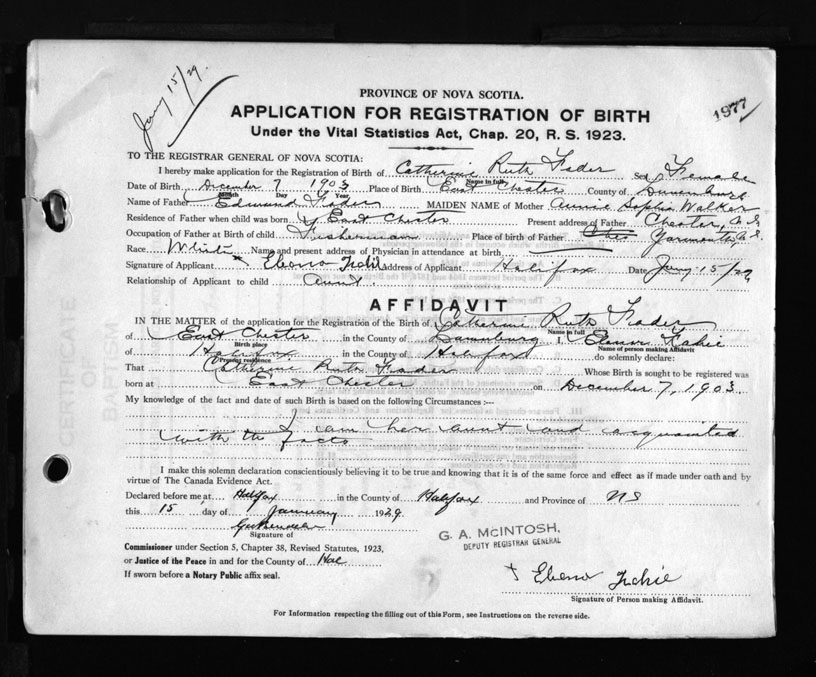 Jany 15/29.
1977
PROVINCE OF NOVA SCOTIA.
APPLICATION FOR REGISTRATION OF BIRTH
Under the Vital Statistics Act, Chap. 20, R. S. 1923.
TO THE REGISTRAR GENERAL OF NOVA SCOTIA:
I hereby make application for the Registration of Birth of Catherine Ruth Fader Sex Female
Name in full
Date of Birth December 7 1903 Place of Birth East Chester County of Lunenburg
Month Day Year
Name of Father Edmund Fader MAIDEN NAME of Mother Annie Sophia Walker
Residence of Father when child was born East Chester Present address of Father Chester, N.S.
Occupation of Father at Birth of child Fisherman Place of birth of Father Yarmouth, N.S.
Race White Name and present address of Physician in attendance at birth
Signature of Applicant Address of Applicant Halifax Date Jany 15/29
Relationship of Applicant to child Aunt.
AFFIDAVIT
IN THE MATTER of the application for the Registration of the Birth of Catherine Ruth Fader
Name in full
of East Chester in the County of Lunenburg I,
Birth place Name of person making Affidavit
of Halifax in the County of Halifax do solemnly declare:
Present residence
That Catherine Ruth Fader Whose Birth is sought to be registered was
born at East Chester on December 7, 1903
My knowledge of the fact and date of such Birth is based on the following Circumstances :—
I am her aunt and acquainted
with the facts
I make this solemn declaration conscientiously believing it to be true and knowing that it is of the same force and effect as if made under oath and by
virtue of The Canada Evidence Act.
Declared before me at Halifax in the County of Halifax and Province of N S
this 15 day of January 1929
Signature of
G. A. McINTOSH,
DEPUTY REGISTRAR GENERAL
Commissioner under Section 5, Chapter 38, Revised Statutes, 1923,
or Justice of the Peace in and for the County of Hal
If sworn before a Notary Public affix seal.
Signature of Person making Affidavit.
For Information respecting the filling out of this Form, see Instructions on the reverse side.